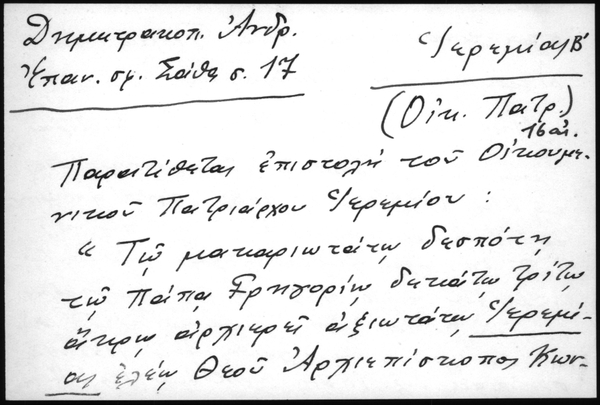 Δημητρακοπ. Ἀνδρ.
Ἐπαν. σφ. Σάθα σ. 17
Ἱερεμίας Β'
(Οἰκ. Πατρ.)
16 αἰ.
Παρατίθεται ἐπιστολή τοῦ Οἰκουμε-
νικοῦ Πατριάρχου Ἱερεμίου :
“ Τῷ μακαριωτάτῳ δεσπότῃ
τῷ Πάπᾳ Γρηγορίῳ δεκάτῳ τρίτῳ
ἄκρῳ ἀρχιερεῖ ἀξιωτάτῳ Ἱερεμί-
ας ἐλέῳ Θεοῦ Ἀρχιεπίσκοπος Κων-